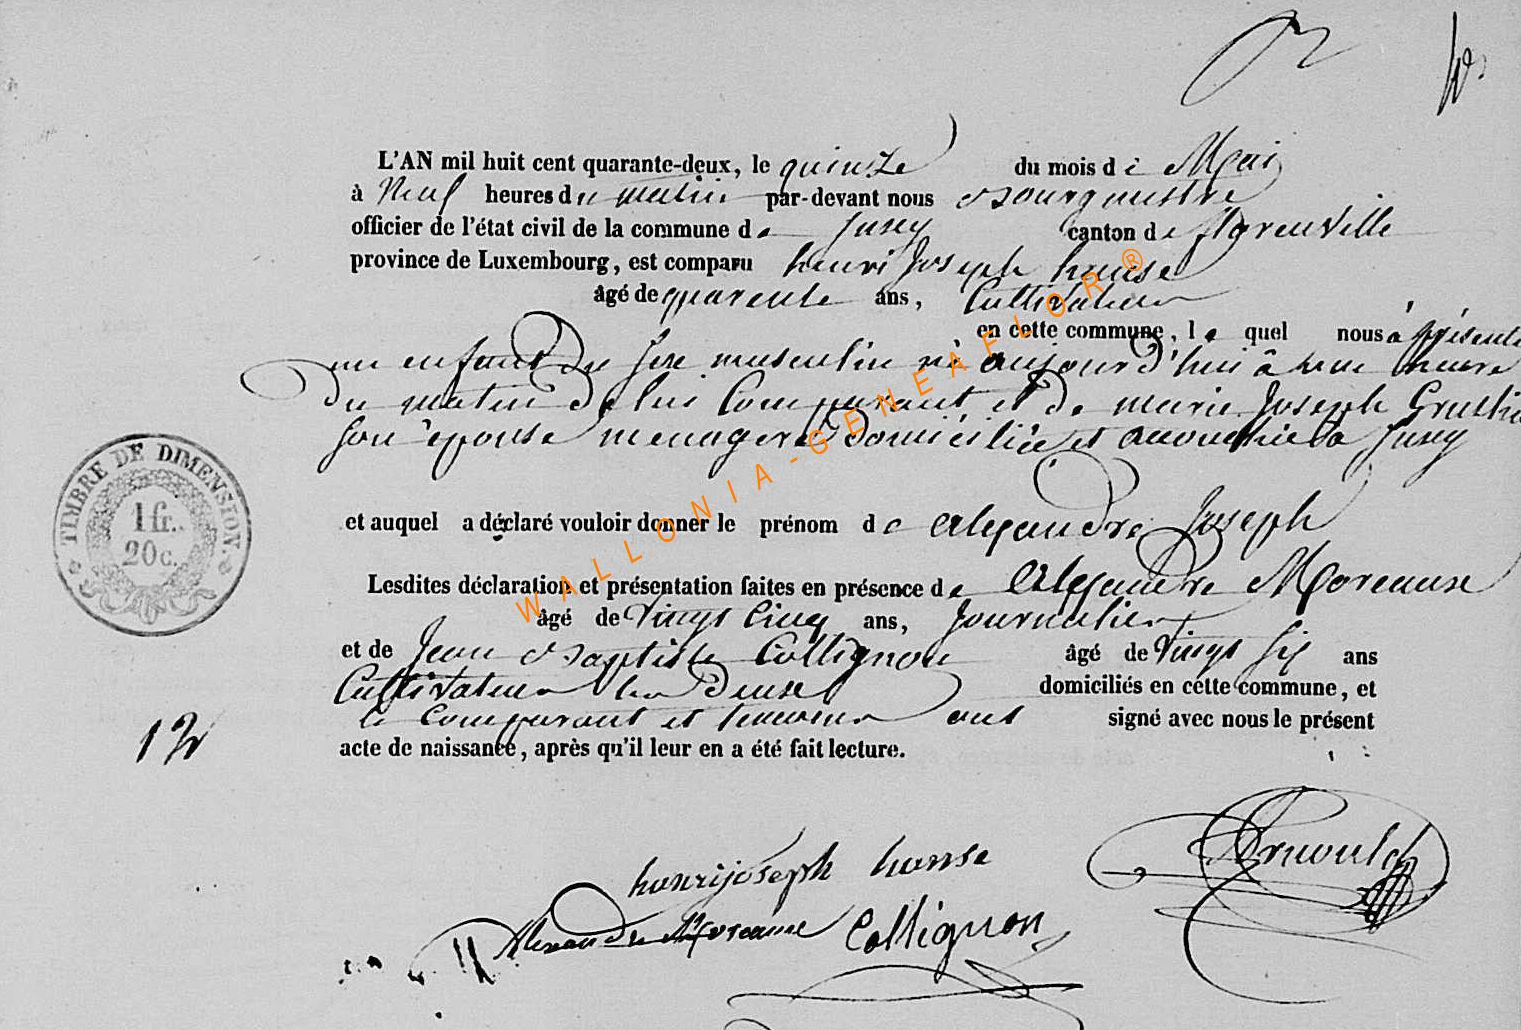 L'AN mil huit cent quarante-deux, le quinze du mois de Mai
à Neuf heures du matin par-devant nous Bourgmestre
officier de l'état civil de la commune de Jusey canton de florenville
province de Luxembourg, est comparu henri Joseph hanse
âgé de quarente ans, Cultivateur
en cette commune, le quel nous à présenté
un enfant du sexe masculin né aujourd'hui à une heure
du matin de lui Comparant et de marie Joseph
son épouse menagere domiciliée et accouchée à Jusey
et auquel a déclaré vouloir donner le prénom de alexandre Joseph
Lesdites déclaration et présentation faites en présence de Alexandre Moreaux
âgé de vingt cinq ans, Journalier
et de Jean Baptiste Collignon âgé de vingt six ans
Cultivateur les deux domiciliés en cette commune, et
le comparant et temoins ont signé avec nous le présent
acte de naissance, après qu'il leur en a été fait lecture.
TIMBRE DE DIMENSION.
1 fr.
20 c.
12
henrijoseph hanse
Alexandre Moreaux Collignon
WALLONIA-GENEAFLOR®